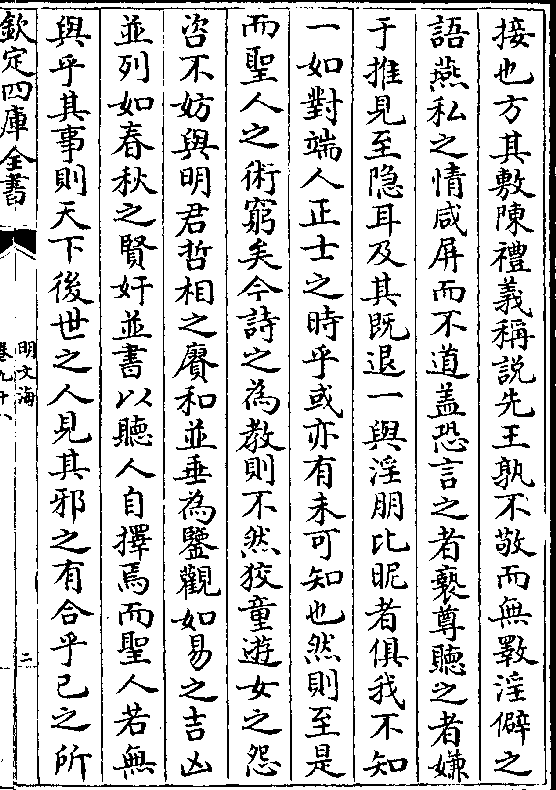 接也方其敷陳禮義稱説先王孰不敬而無斁淫僻之
語燕私之情咸屏而不道盖恐言之者褻尊聽之者嫌
于推見至隐耳及其既退一與淫朋比昵者俱我不知
一如對端人正士之時乎或亦有未可知也然則至是
而聖人之術窮矣今詩之為教則不然狡童遊女之怨
咨不妨與明君哲相之賡和並垂為鑒觀如易之吉凶
並列如春秋之賢奸並書以聽人自擇焉而聖人若無
與乎其事則天下後世之人見其邪之有合乎已之所
欽定四庫全書
明文海
卷九十八
二